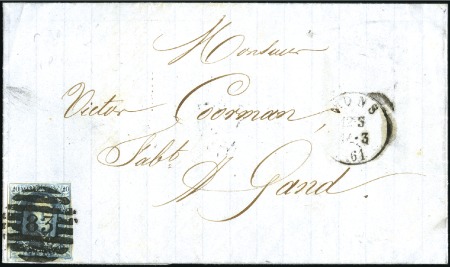 Monsieur
Victor Coorman,
Fabt
A Gand
MONS
3
61
20 20
83